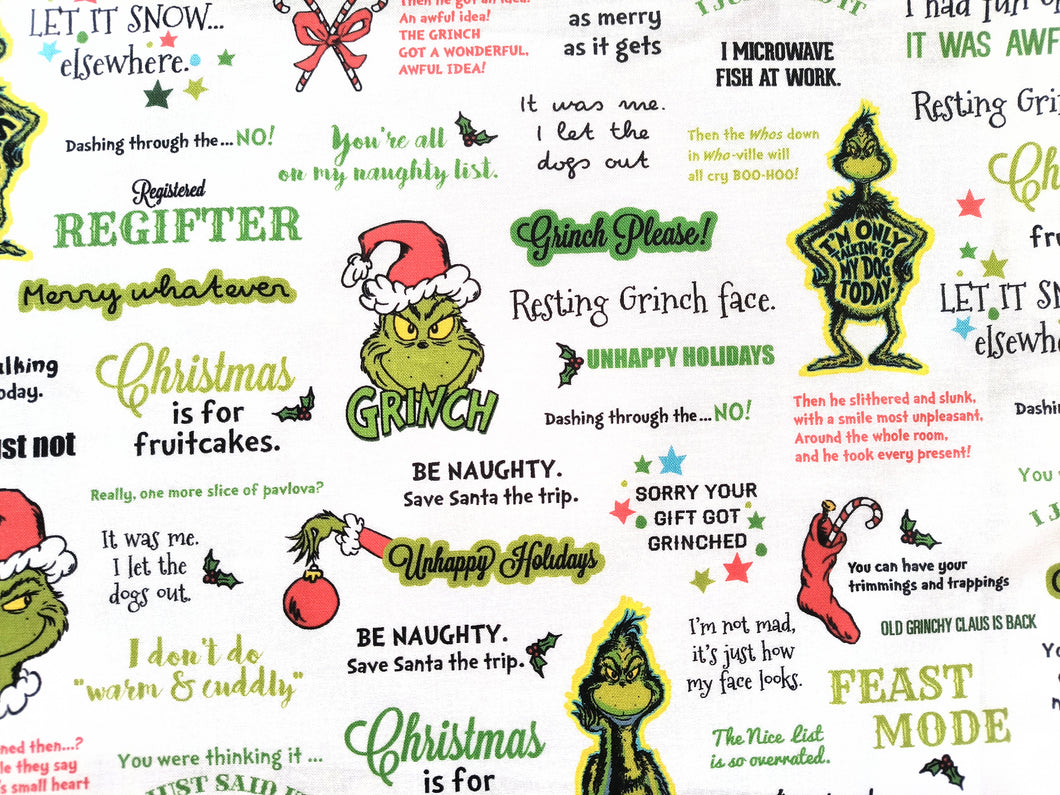 LET IT SNOW...
elsewhere.
Then he got an idea!
An awful idea!
THE GRINCH
GOT A WONDERFUL,
AWFUL IDEA!
as merry
as it gets
I MICROWAVE
FISH AT WORK.
I had fun
IT WAS AWF
Resting Gri
Dashing through the... NO!
You're all
on my naughty list.
It was me.
I let the
dogs out
Then the Whos down
in Who-ville will
all cry BOO-HOO!
Registered
REGIFTER
Merry whatever
Grinch Please!
I'M ONLY
TALKING TO
MY DOG
TODAY.
Ch
fru
Resting Grinch face.
LET IT SN
elsewhe
alking
oday.
Christmas
is for
fruitcakes.
GRINCH
UNHAPPY HOLIDAYS
Dashing through the... NO!
Then he slithered and slunk,
with a smile most unpleasant,
Around the whole room,
and he took every present!
Dashi
ust not
Really, one more slice of pavlova?
BE NAUGHTY.
Save Santa the trip.
SORRY YOUR
GIFT GOT
GRINCHED
You
I J
It was me.
I let the
dogs out.
Unhappy Holidays
You can have your
trimmings and trappings
OLD GRINCHY CLAUS IS BACK
I don't do
"warm & cuddly"
BE NAUGHTY.
Save Santa the trip.
I'm not mad,
it's just how
my face looks.
FEAST
MODE
ned then...?
le they say
's small heart
You were thinking it ...
JUST SAID IT
Christmas
is for
The Nice List
is so overrated.